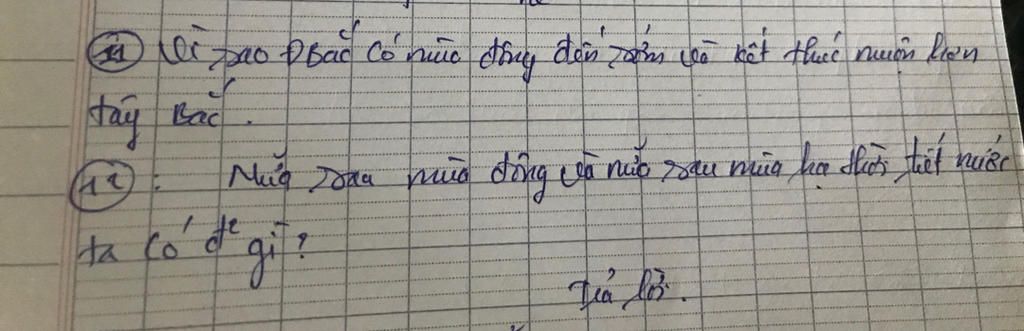 11 Vì sao ĐBắc có mùa đông đến sớm và kết thúc muộn hơn
tây Bắc.
12: Nửa sau mùa đông và nửa sau mùa hạ thời tiết nước
ta có đ² gì?
Trả lời.